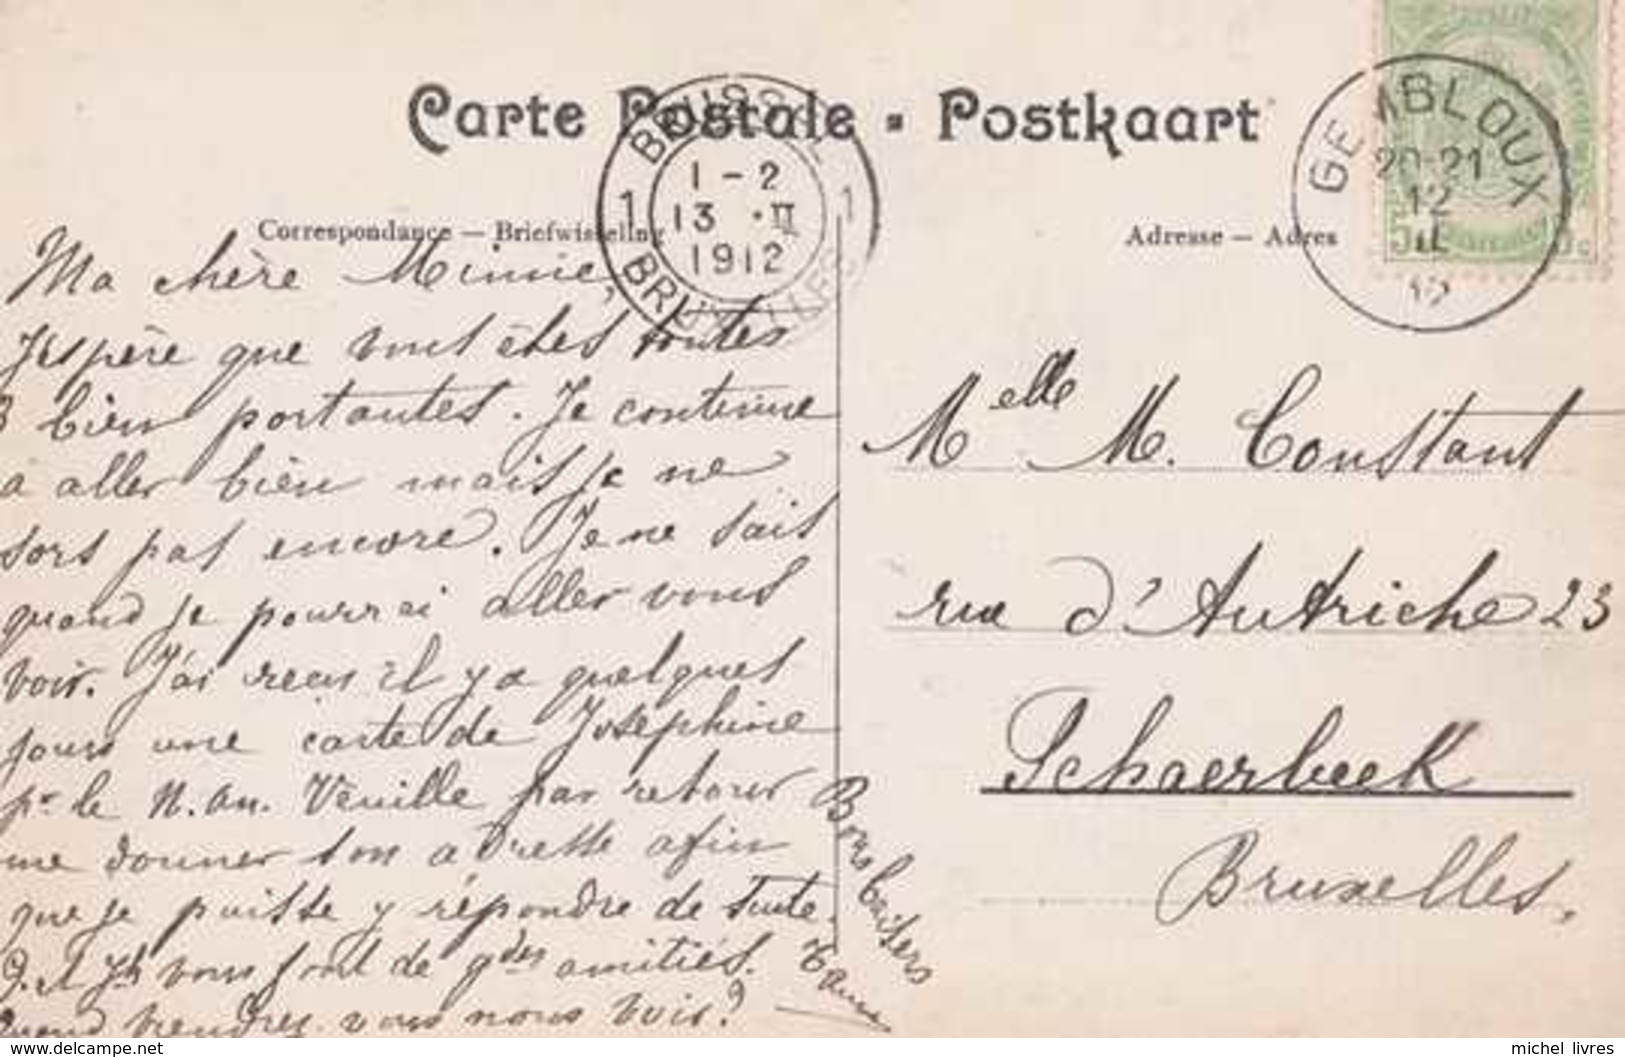 Carte Postale - Postkaart
BRUSSEL
1 - 2
1 13 · II 1
1912
BRUXELLES
GEMBLOUX
20-21
12
II
12
Correspondance — Briefwisseling
Adresse — Adres
Ma chère Mimie,
J'espère que vous êtes toutes
bien portantes. Je continue
à aller bien mais je ne
sors pas encore. Je ne sais
quand je pourrai aller vous
voir. J'ai reçu il y a quelques
jours une carte de Joséphine
pr le N. An. Veuille par retour
me donner son adresse afin
que je puisse y répondre de suite.
et Jh vous font de gdes amitiés.
Quand viendrez vous nous voir?
Bons baisers
Melle M. Constant
rue d'Autriche 23
Schaerbeek
Bruxelles.
www.delcampe.net
michel_livres